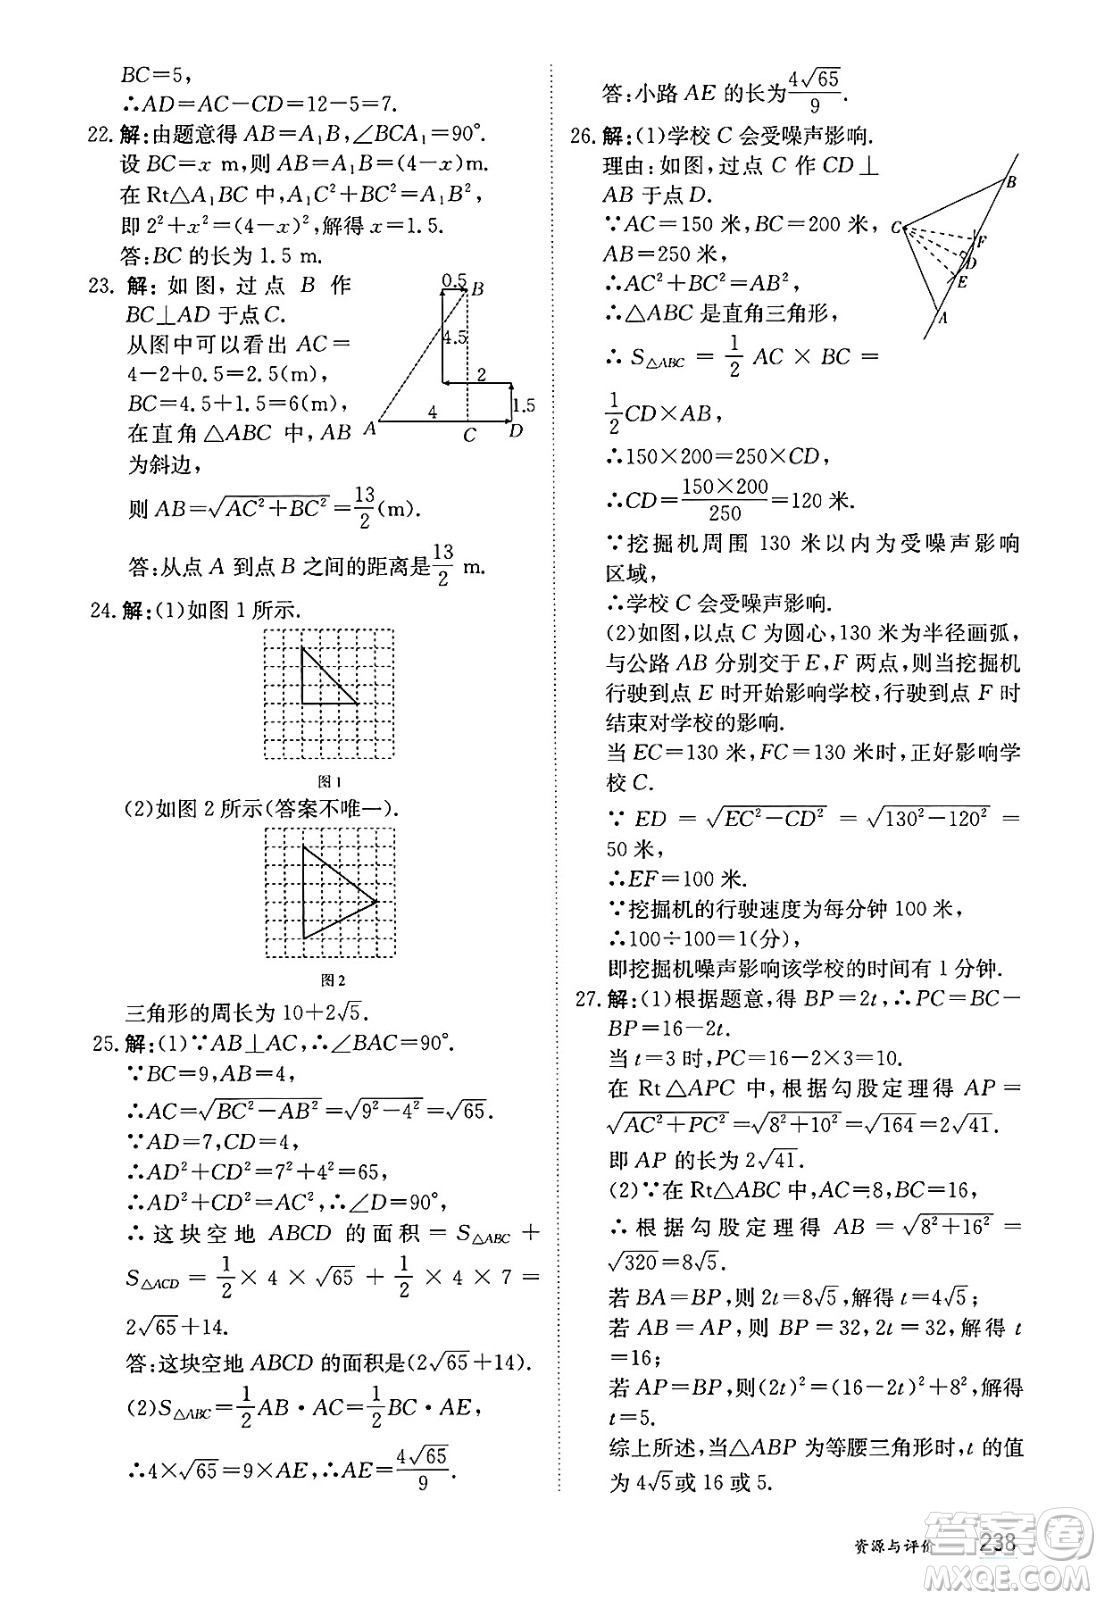 BC=5,
∴AD=AC-CD=12-5=7.
22. 解:由题意得 AB=A₁B,∠BCA₁=90°.
设 BC=x m,则 AB=A₁B=(4-x)m.
在 Rt△A₁BC 中,A₁C²+BC²=A₁B²,
即 2²+x²=(4-x)²,解得 x=1.5.
答:BC 的长为 1.5 m.
23. 解: 如图,过点 B 作
BC⊥AD 于点C.
从图中可以看出 AC=
4-2+0.5=2.5(m),
BC=4.5+1.5=6(m),
在直角△ABC 中,AB
为斜边,
0.5
B
4.5
2
1.5
4
A
C
D
则 AB=√(AC²+BC²)=13/2(m).
答:从点 A 到点 B 之间的距离是13/2 m.
24. 解:(1)如图 1 所示.
图1
(2)如图 2 所示(答案不唯一).
图2
三角形的周长为 10+2√5.
25. 解:(1)∵AB⊥AC,∴∠BAC=90°.
∵BC=9,AB=4,
∴AC=√(BC²-AB²)=√(9²-4²)=√65.
∵AD=7,CD=4,
∴AD²+CD²=7²+4²=65,
∴AD²+CD²=AC²,∴∠D=90°,
∴这块空地 ABCD 的面积=S△ABC+
S△ACD=1/2×4×√65+1/2×4×7=
2√65+14.
答:这块空地 ABCD 的面积是(2√65+14).
(2)S△ABC=1/2AB·AC=1/2BC·AE,
∴4×√65=9×AE,∴AE=4√65/9.
答:小路 AE 的长为4√65/9.
26. 解:(1)学校 C 会受噪声影响.
理由:如图,过点 C 作 CD⊥
AB 于点 D.
∵AC=150 米,BC=200 米,
AB=250 米,
∴AC²+BC²=AB²,
∴△ABC 是直角三角形,
∴S△ABC=1/2 AC×BC=
1/2CD×AB,
B
C
F
D
E
A
∴150×200=250×CD,
∴CD=150×200/250=120 米.
∵挖掘机周围 130 米以内为受噪声影响
区域,
∴学校 C 会受噪声影响.
(2)如图,以点 C 为圆心,130 米为半径画弧,
与公路 AB 分别交于 E,F 两点,则当挖掘机
行驶到点 E 时开始影响学校,行驶到点 F 时
结束对学校的影响.
当 EC=130 米,FC=130 米时,正好影响学
校 C.
∵ED=√(EC²-CD²)=√(130²-120²)=
50 米,
∴EF=100 米.
∵挖掘机的行驶速度为每分钟 100 米,
∴100÷100=1(分),
即挖掘机噪声影响该学校的时间有 1 分钟.
27. 解:(1)根据题意,得 BP=2t,∴PC=BC-
BP=16-2t.
当 t=3 时,PC=16-2×3=10.
在 Rt△APC 中,根据勾股定理得 AP=
√(AC²+PC²)=√(8²+10²)=√164=2√41.
即 AP 的长为 2√41.
(2)∵在 Rt△ABC 中,AC=8,BC=16,
∴根据勾股定理得 AB=√(8²+16²)=
√320=8√5.
若 BA=BP,则 2t=8√5,解得 t=4√5;
若 AB=AP,则 BP=32,2t=32,解得 t
=16;
若 AP=BP,则(2t)²=(16-2t)²+8²,解得
t=5.
综上所述,当△ABP 为等腰三角形时,t 的值
为 4√5或 16 或 5.
资源与评价 238
答案卷
MXQE.COM